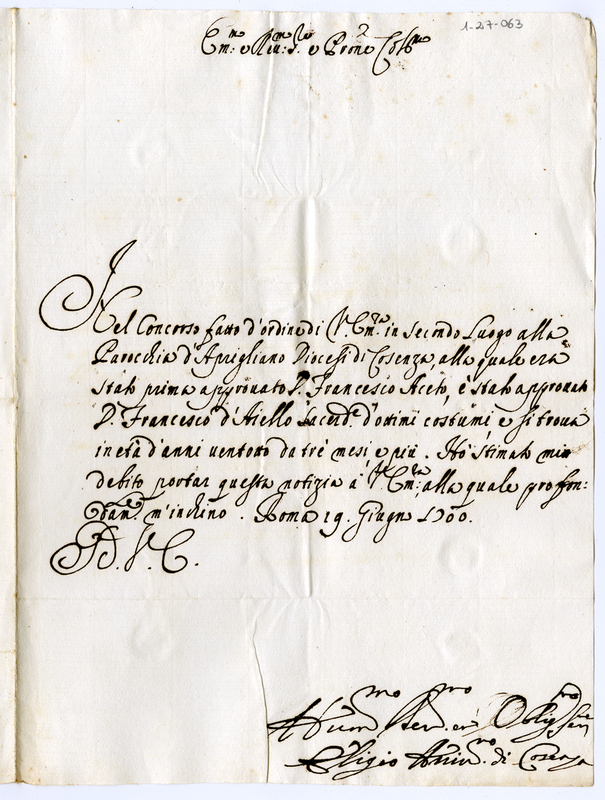 1-27-063
Em:mo e Rev:mo Sre e Prone Colmo
Nel Concorso fatto d'ordine di V. Em:za in secondo Luogo alla
Parocchia d'Aprigliano Diocesi di Cosenza alla quale era
stato prima approuato D. Francesco Aceto, è stato approuato
D. Francesco d'Aiello Sacerd.e d'ottimi costumi e si troua
in età d'anni ventotto da trè mesi e più. Hò stimato mio
debito portar questa notizia a V. Em:za, alla quale profon:
dam.e m'inchino. Roma 19. Giugn 1700.
D. V. E.
Humo Deuo er Obligmo Seru
Eligio Arciu.o di Cosenza